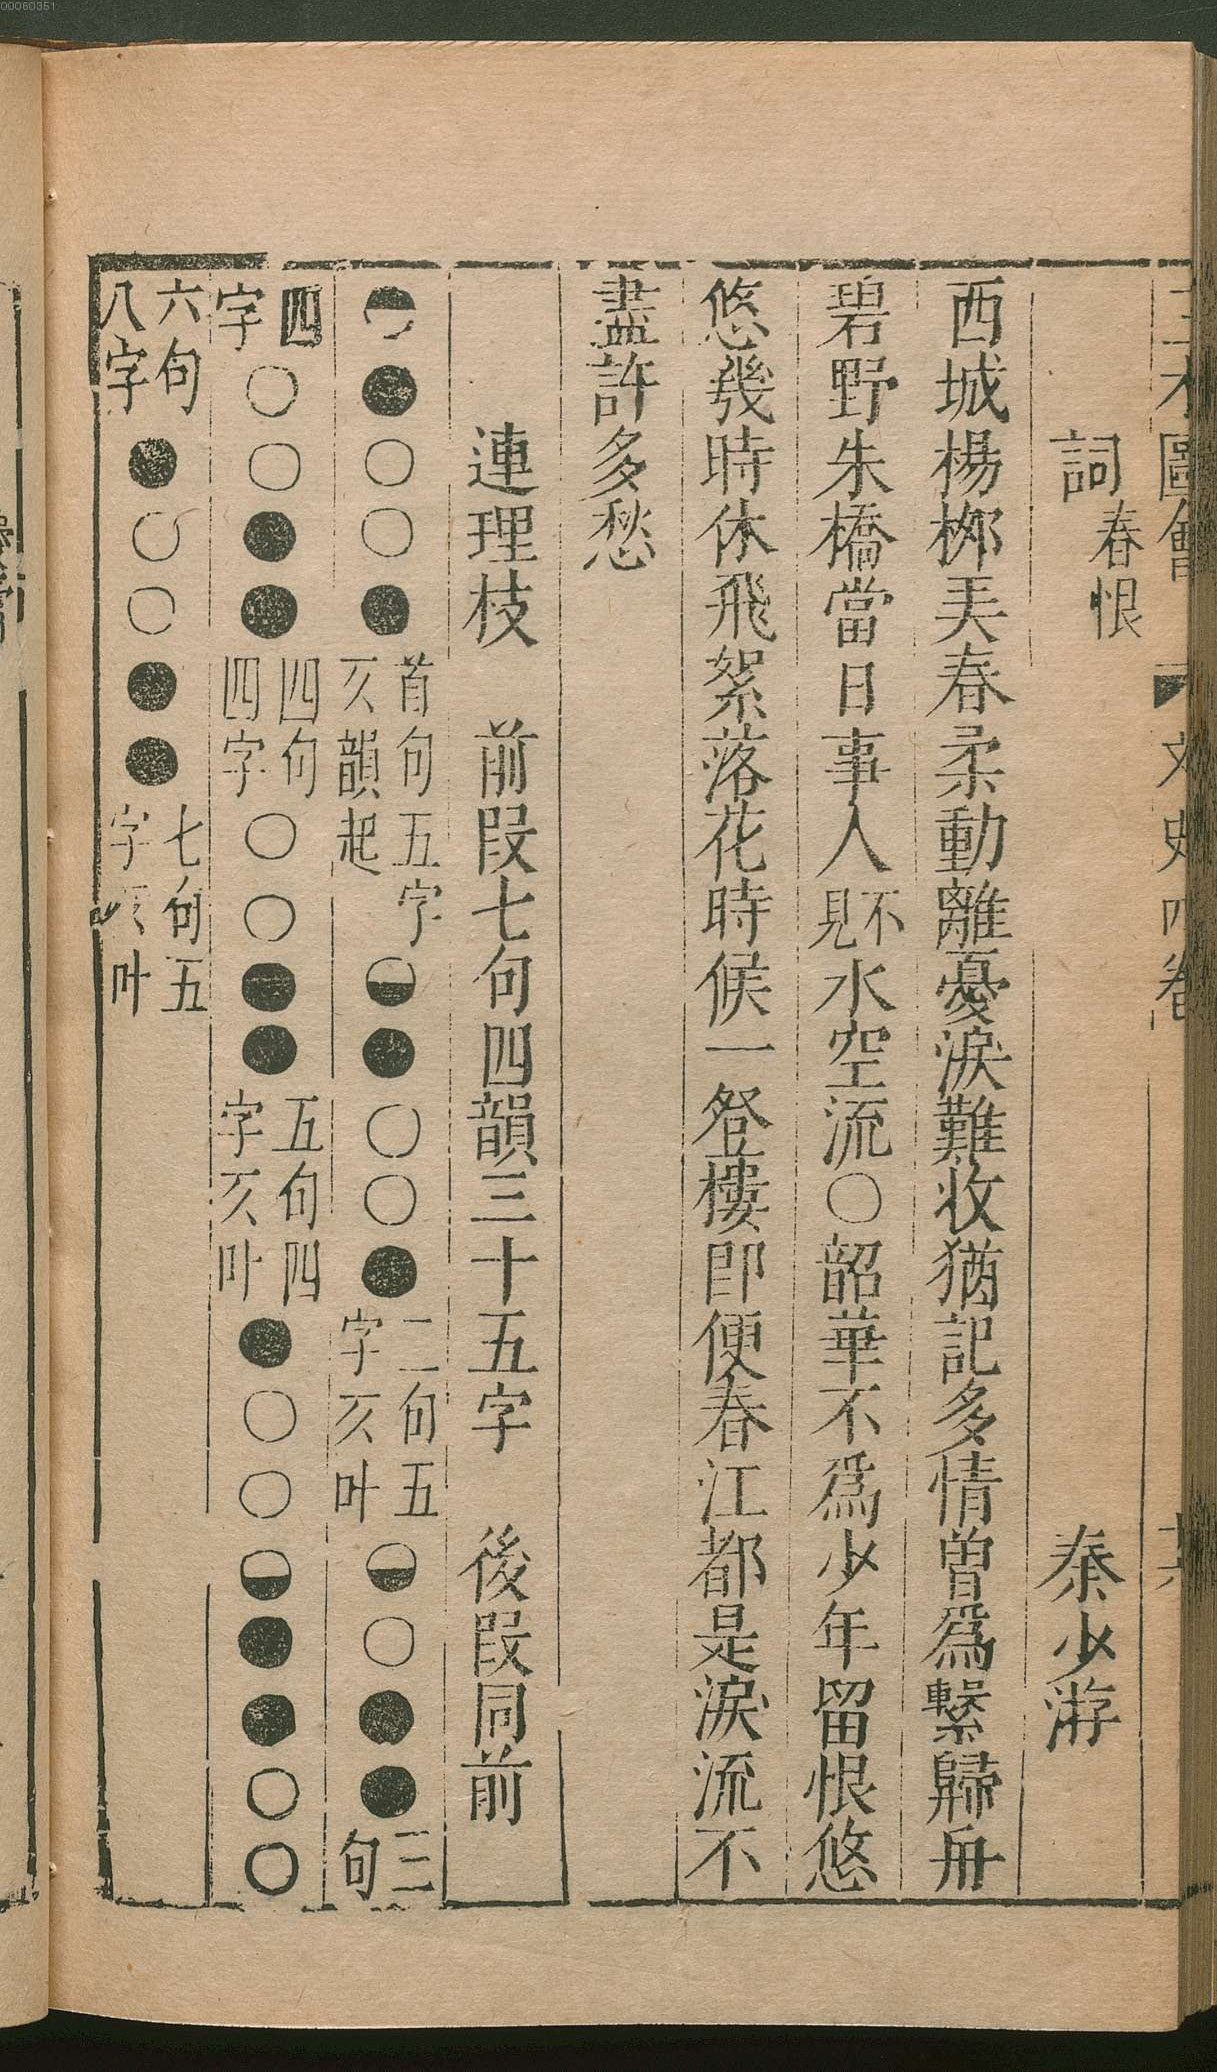 00060351
圖會 文史四卷
詞 春恨 秦少游
西城楊栁弄春柔動離憂淚難收猶記多情曽爲繫歸舟
碧野朱橋當日事人不見水空流○韶華不爲少年留恨悠
悠幾時休飛絮落花時候一登樓即便春江都是淚流不
盡許多愁
連理枝 前段七句四韻三十五字 後段同前
◓●○○●首句五字仄韻起◒●○○●二句五字仄叶◒○●●三句
四字○○●●四句四字○○●●五句四字仄叶●○○◒●●○○
六句八字●○○●●七句五字仄叶